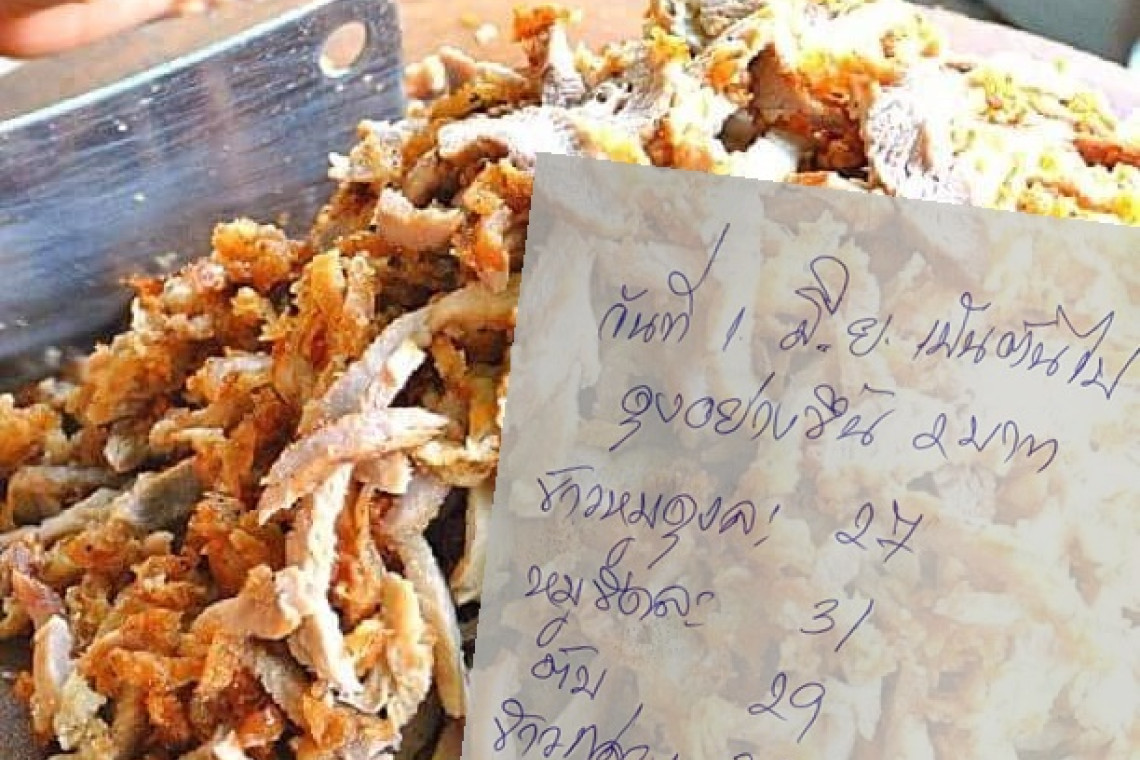 วันที่ 1. มิ.ย. เป็นต้นไป
ถุงอย่างขึ้น 2 บาท
ข้าวหมูถุงละ 27
หมูขีดละ 31
ตับ 29